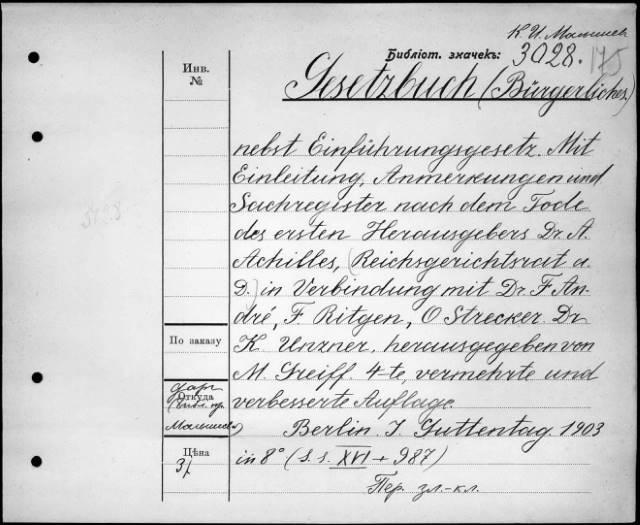 К. И. Малышев
Библіот. значекъ: 3028. 175
Инв. №
Gesetzbuch (Bürgerliches)
nebst Einführungsgesetz. Mit
Einleitung, Anmerkungen und
Sachregister nach dem Tode
des ersten Herausgebers Dr. A.
Achilles, (Reichsgerichtsrat a.
D.) in Verbindung mit Dr. F An-
dré, F. Ritgen, O Strecker. Dr
K. Unzner. herausgegeben von
M. Greiff. 4-te, vermehrte und
verbesserte Auflage.
Berlin. J. Guttentag. 1903
in 8° (S. s. XVI + 987)
Пер. зл.-кл.
3028
По заказу
даръ
Откуда
Малышева)
Цѣна
3/